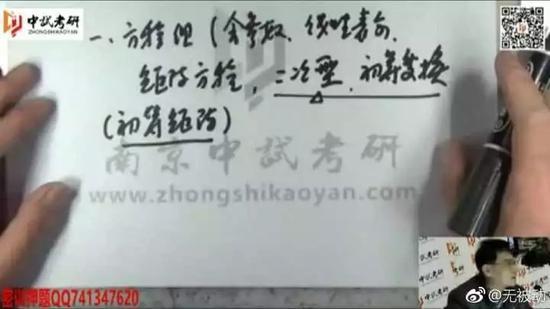 中試考研
ZHONGSHIKAOYAN
一、方程组(含参数、线性表示、
矩阵方程,二次型,初等变换
(初等矩阵)
南京中試考研
www.zhongshikaoyan.com
密训押题QQ741347620
中試考研
@无被动